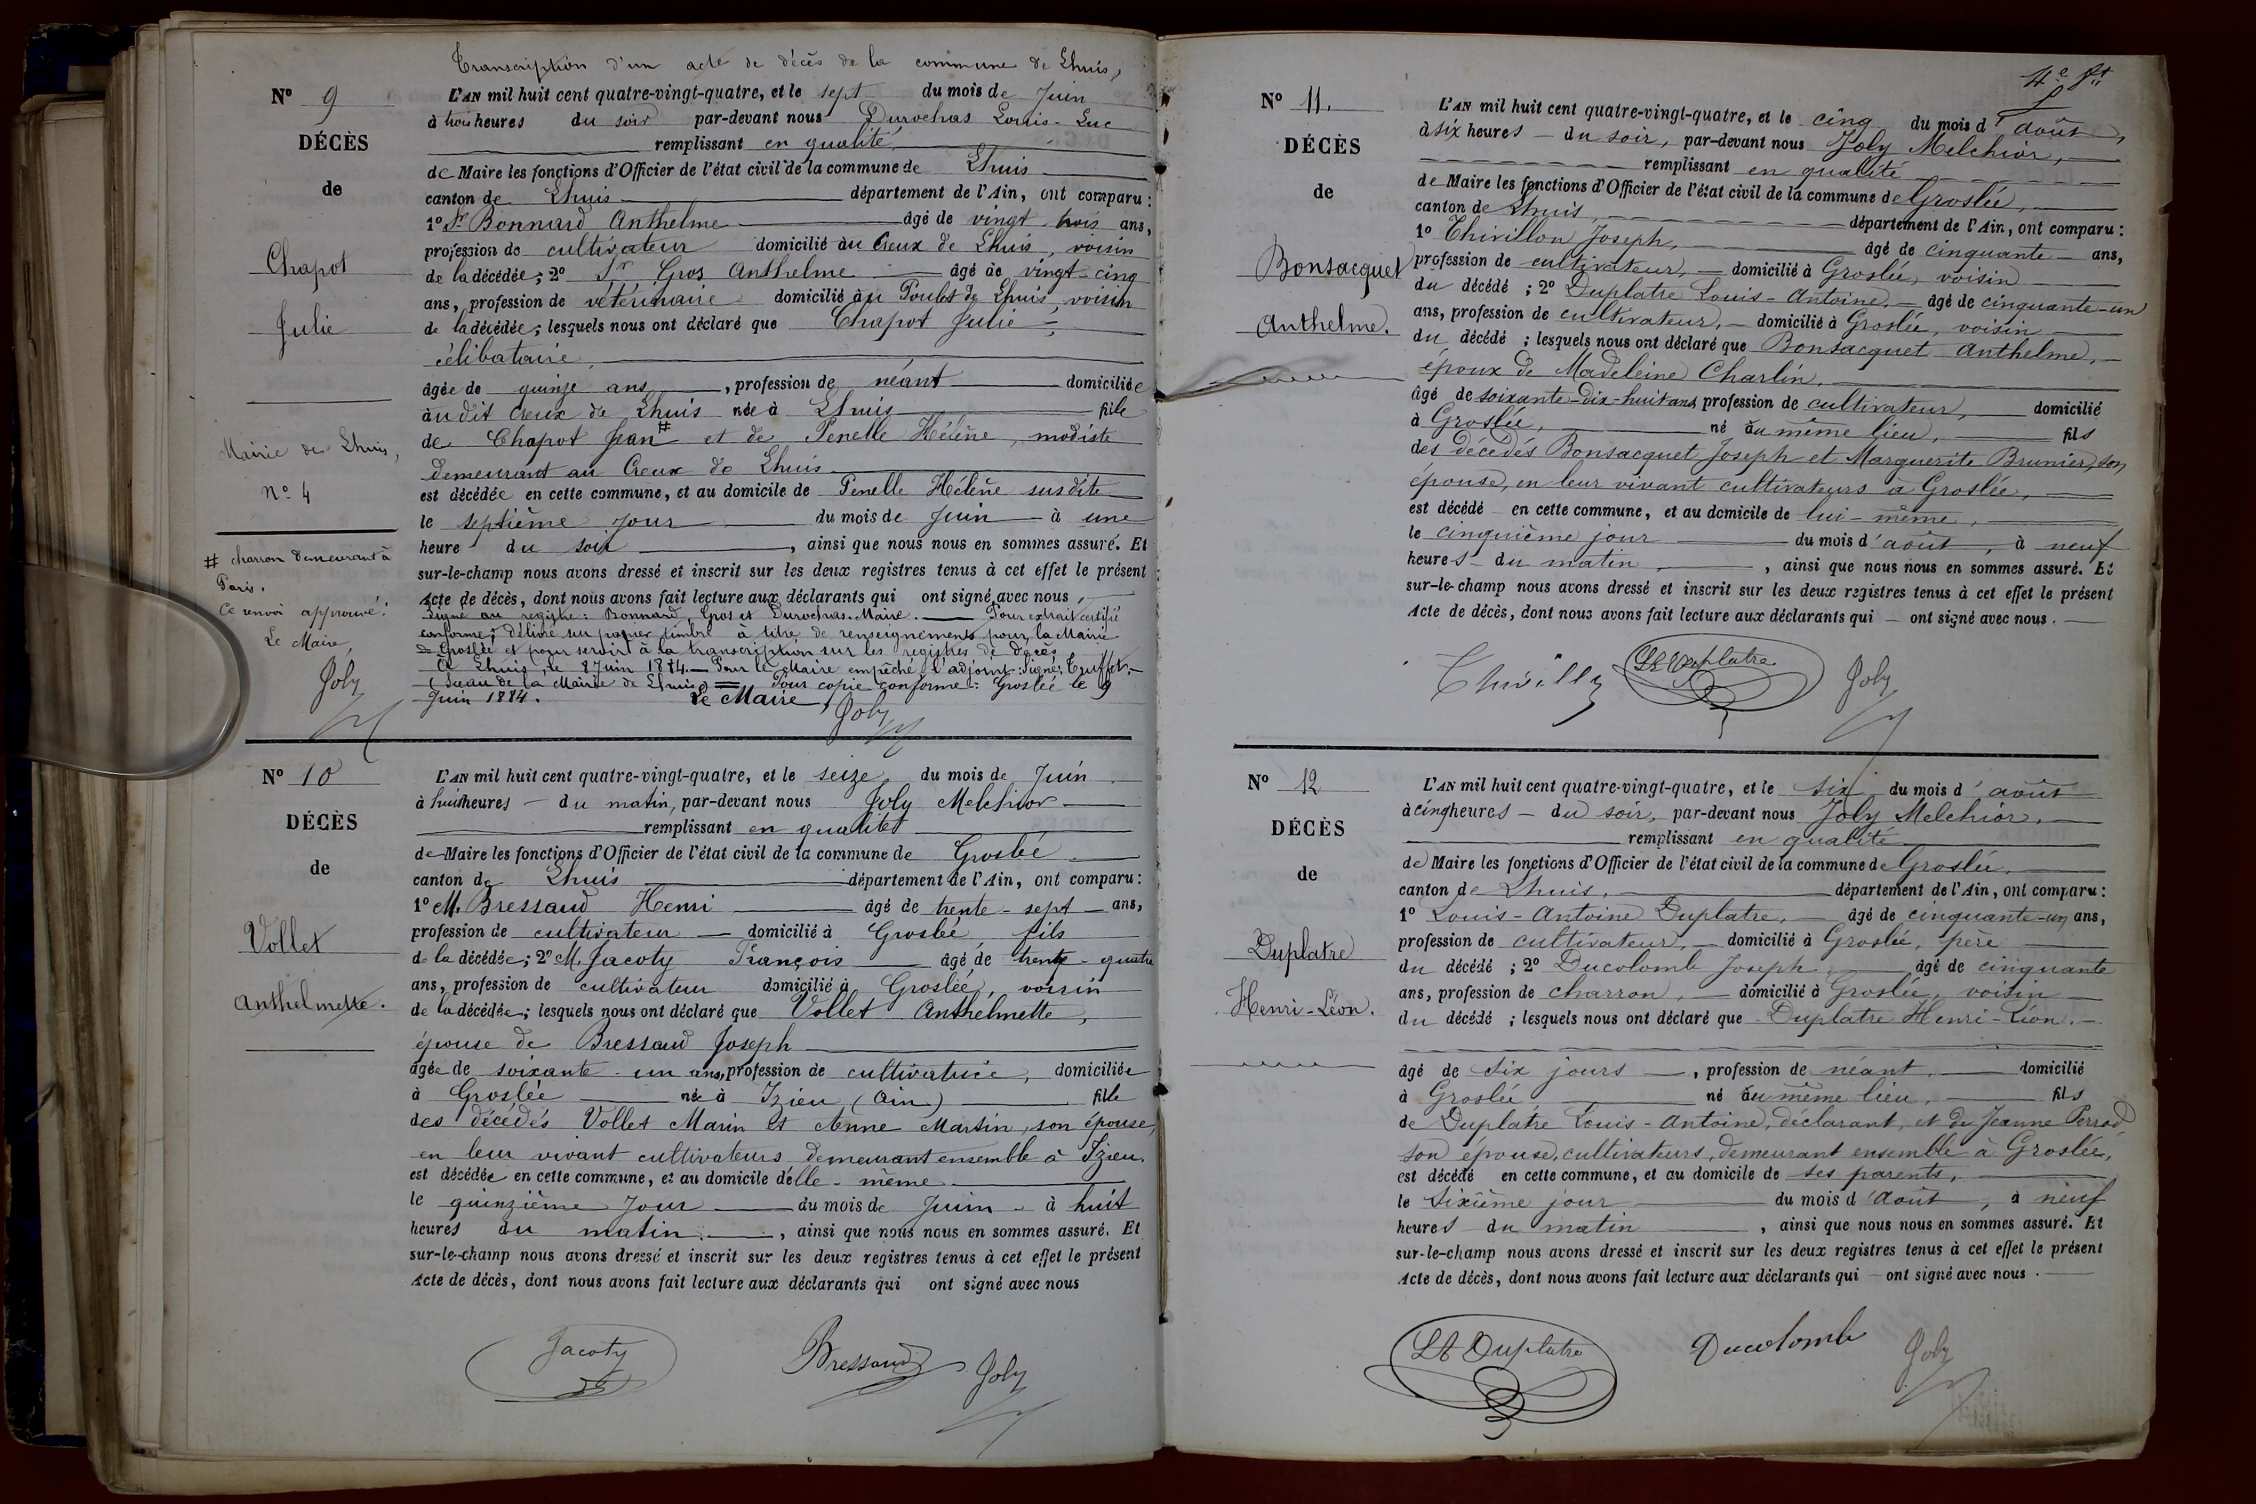 Transcription d'un acte de décès de la commune de Lhuis,
N° 9
DÉCÈS
de
Chapot
Julie
Mairie de Lhuis,
N° 4
# charron demeurant à
Paris.
Ce renvoi approuvé:
Le Maire,
Joly
L'AN mil huit cent quatre-vingt-quatre, et le sept du mois de Juin
à trois heures du soir par-devant nous Durochas Louis-Luc
remplissant en qualité
de Maire les fonctions d'Officier de l'état civil de la commune de Lhuis
canton de Lhuis département de l'Ain, ont comparu:
1° Sr Bonnard Anthelme âgé de vingt-trois ans,
profession de cultivateur domicilié au Creux de Lhuis, voisin
de la décédée; 2° Sr Gros Anthelme âgé de vingt-cinq
ans, profession de vétérinaire domicilié au Poulet de Lhuis, voisin
de la décédée; lesquels nous ont déclaré que Chapot Julie
célibataire,
âgée de quinze ans, profession de néant domiciliée
au dit Creux de Lhuis née à Lhuis fille
de Chapot Jean # et de Penelle Hélène, modiste
demeurant au Creux de Lhuis
est décédée en cette commune, et au domicile de Penelle Hélène susdite
le septième jour du mois de Juin à une
heure du soir, ainsi que nous nous en sommes assuré. Et
sur-le-champ nous avons dressé et inscrit sur les deux registres tenus à cet effet le présent
Acte de décès, dont nous avons fait lecture aux déclarants qui ont signé avec nous,
Signé au registre: Bonnard, Gros et Durochas. Maire. — Pour extrait certifié
conforme; délivré sur papier timbré à titre de renseignements pour la Mairie
de Groslée et pour servir à la transcription sur les registres de décès
A Lhuis, le 8 Juin 1884. — Pour le Maire empêché, l'adjoint: Signé: Truffet. —
(Sceau de la Mairie de Lhuis) = Pour copie conforme: Groslée le 9
Juin 1884. Le Maire,
Joly
N° 10
DÉCÈS
de
Vollet
Anthelmette.
L'AN mil huit cent quatre-vingt-quatre, et le seize du mois de Juin
à huit heures — du matin, par-devant nous Joly Melchior
remplissant en qualité
de Maire les fonctions d'Officier de l'état civil de la commune de Groslée
canton de Lhuis département de l'Ain, ont comparu:
1° M. Bressaud Henri âgé de trente-sept ans,
profession de cultivateur — domicilié à Groslée fils
de la décédée; 2° M. Jacoty François âgé de trente-quatre
ans, profession de cultivateur domicilié à Groslée, voisin
de la décédée; lesquels nous ont déclaré que Vollet Anthelmette,
épouse de Bressaud Joseph
âgée de soixante-un ans, profession de cultivatrice, domiciliée
à Groslée née à Izieu (Ain) fille
des décédés Vollet Marin et Anne Martin, son épouse,
en leur vivant cultivateurs demeurant ensemble à Izieu.
est décédée en cette commune, et au domicile d'elle-même
le quinzième jour du mois de Juin à huit
heures du matin, ainsi que nous nous en sommes assuré. Et
sur-le-champ nous avons dressé et inscrit sur les deux registres tenus à cet effet le présent
Acte de décès, dont nous avons fait lecture aux déclarants qui ont signé avec nous
Jacoty Bressaud Joly
4e ft
N° 11.
DÉCÈS
de
Bonsacquet
Anthelme.
L'AN mil huit cent quatre-vingt-quatre, et le cinq du mois d'août,
à six heures — du soir, par-devant nous Joly Melchior,
remplissant en qualité
de Maire les fonctions d'Officier de l'état civil de la commune de Groslée,
canton de Lhuis, département de l'Ain, ont comparu:
1° Thivillon Joseph, âgé de cinquante ans,
profession de cultivateur, — domicilié à Groslée, voisin
du décédé; 2° Duplatre Louis-Antoine, — âgé de cinquante-un
ans, profession de cultivateur, — domicilié à Groslée, voisin
du décédé; lesquels nous ont déclaré que Bonsacquet Anthelme,
époux de Madeleine Charlin,
âgé de soixante-dix-huit ans profession de cultivateur, domicilié
à Groslée, né au même lieu, fils
des décédés Bonsacquet Joseph et Marguerite Brunier, son
épouse, en leur vivant cultivateurs à Groslée,
est décédé en cette commune, et au domicile de lui-même,
le cinquième jour du mois d'août, à neuf
heures — du matin, ainsi que nous nous en sommes assuré. Et
sur-le-champ nous avons dressé et inscrit sur les deux registres tenus à cet effet le présent
Acte de décès, dont nous avons fait lecture aux déclarants qui — ont signé avec nous. —
LA Duplatre Joly
N° 12
DÉCÈS
de
Duplatre
Henri-Léon.
L'AN mil huit cent quatre-vingt-quatre, et le six du mois d'août
à cinq heures — du soir, par-devant nous Joly Melchior,
remplissant en qualité
de Maire les fonctions d'Officier de l'état civil de la commune de Groslée,
canton de Lhuis, département de l'Ain, ont comparu:
1° Louis-Antoine Duplatre, — âgé de cinquante-un ans,
profession de cultivateur, — domicilié à Groslée, père
du décédé; 2° Ducolomb Joseph, âgé de cinquante
ans, profession de charron, — domicilié à Groslée, voisin
du décédé; lesquels nous ont déclaré que Duplatre Henri-Léon, —
âgé de six jours —, profession de néant, domicilié
à Groslée né au même lieu, fils
de Duplatre Louis-Antoine, déclarant, et de Jeanne Perrod
son épouse, cultivateurs, demeurant ensemble à Groslée,
est décédé en cette commune, et au domicile de ses parents,
le sixième jour du mois d'août, à neuf
heures du matin, ainsi que nous nous en sommes assuré. Et
sur-le-champ nous avons dressé et inscrit sur les deux registres tenus à cet effet le présent
Acte de décès, dont nous avons fait lecture aux déclarants qui — ont signé avec nous. —
LA Duplatre Ducolomb Joly